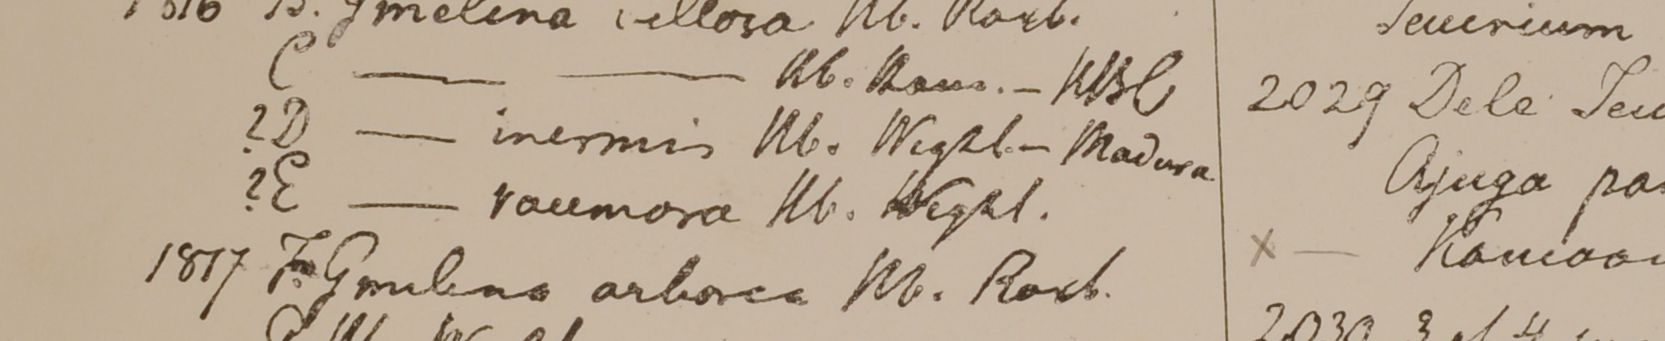 1816 B. Gmelina villosa Hb. Roxb.
C — — Hb. Ham. — HBC
?D — inermis Hb. Wight — Madura
?E — racemosa Hb. Wight.
1817 F. Gmelina arborea Hb. Roxb.
G Hb. Wight
Teucrium
2029 Dele Teu
Ajuga pa
x — Kamaon
2030 3 et 4